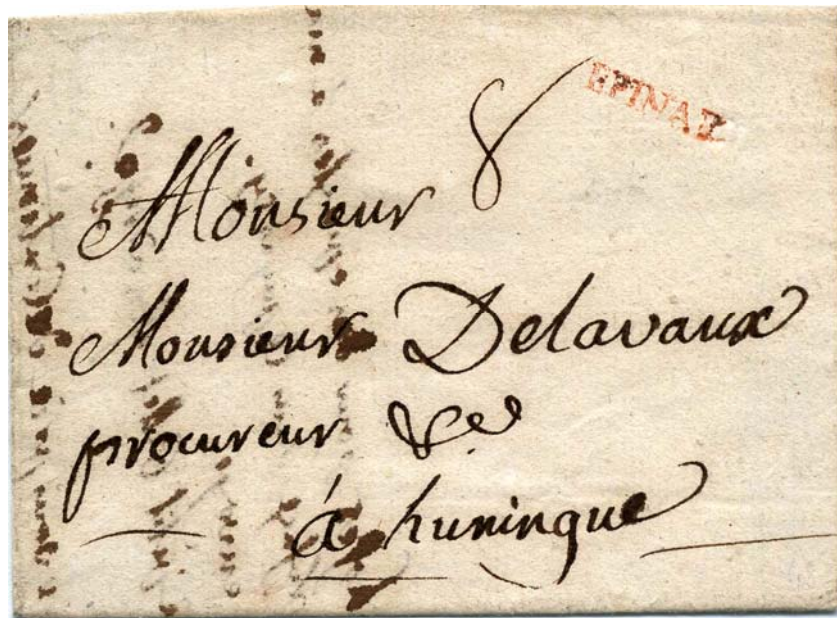 EPINAL
8
Monsieur
Monsieur Delavaux
procureur &c
à huningue